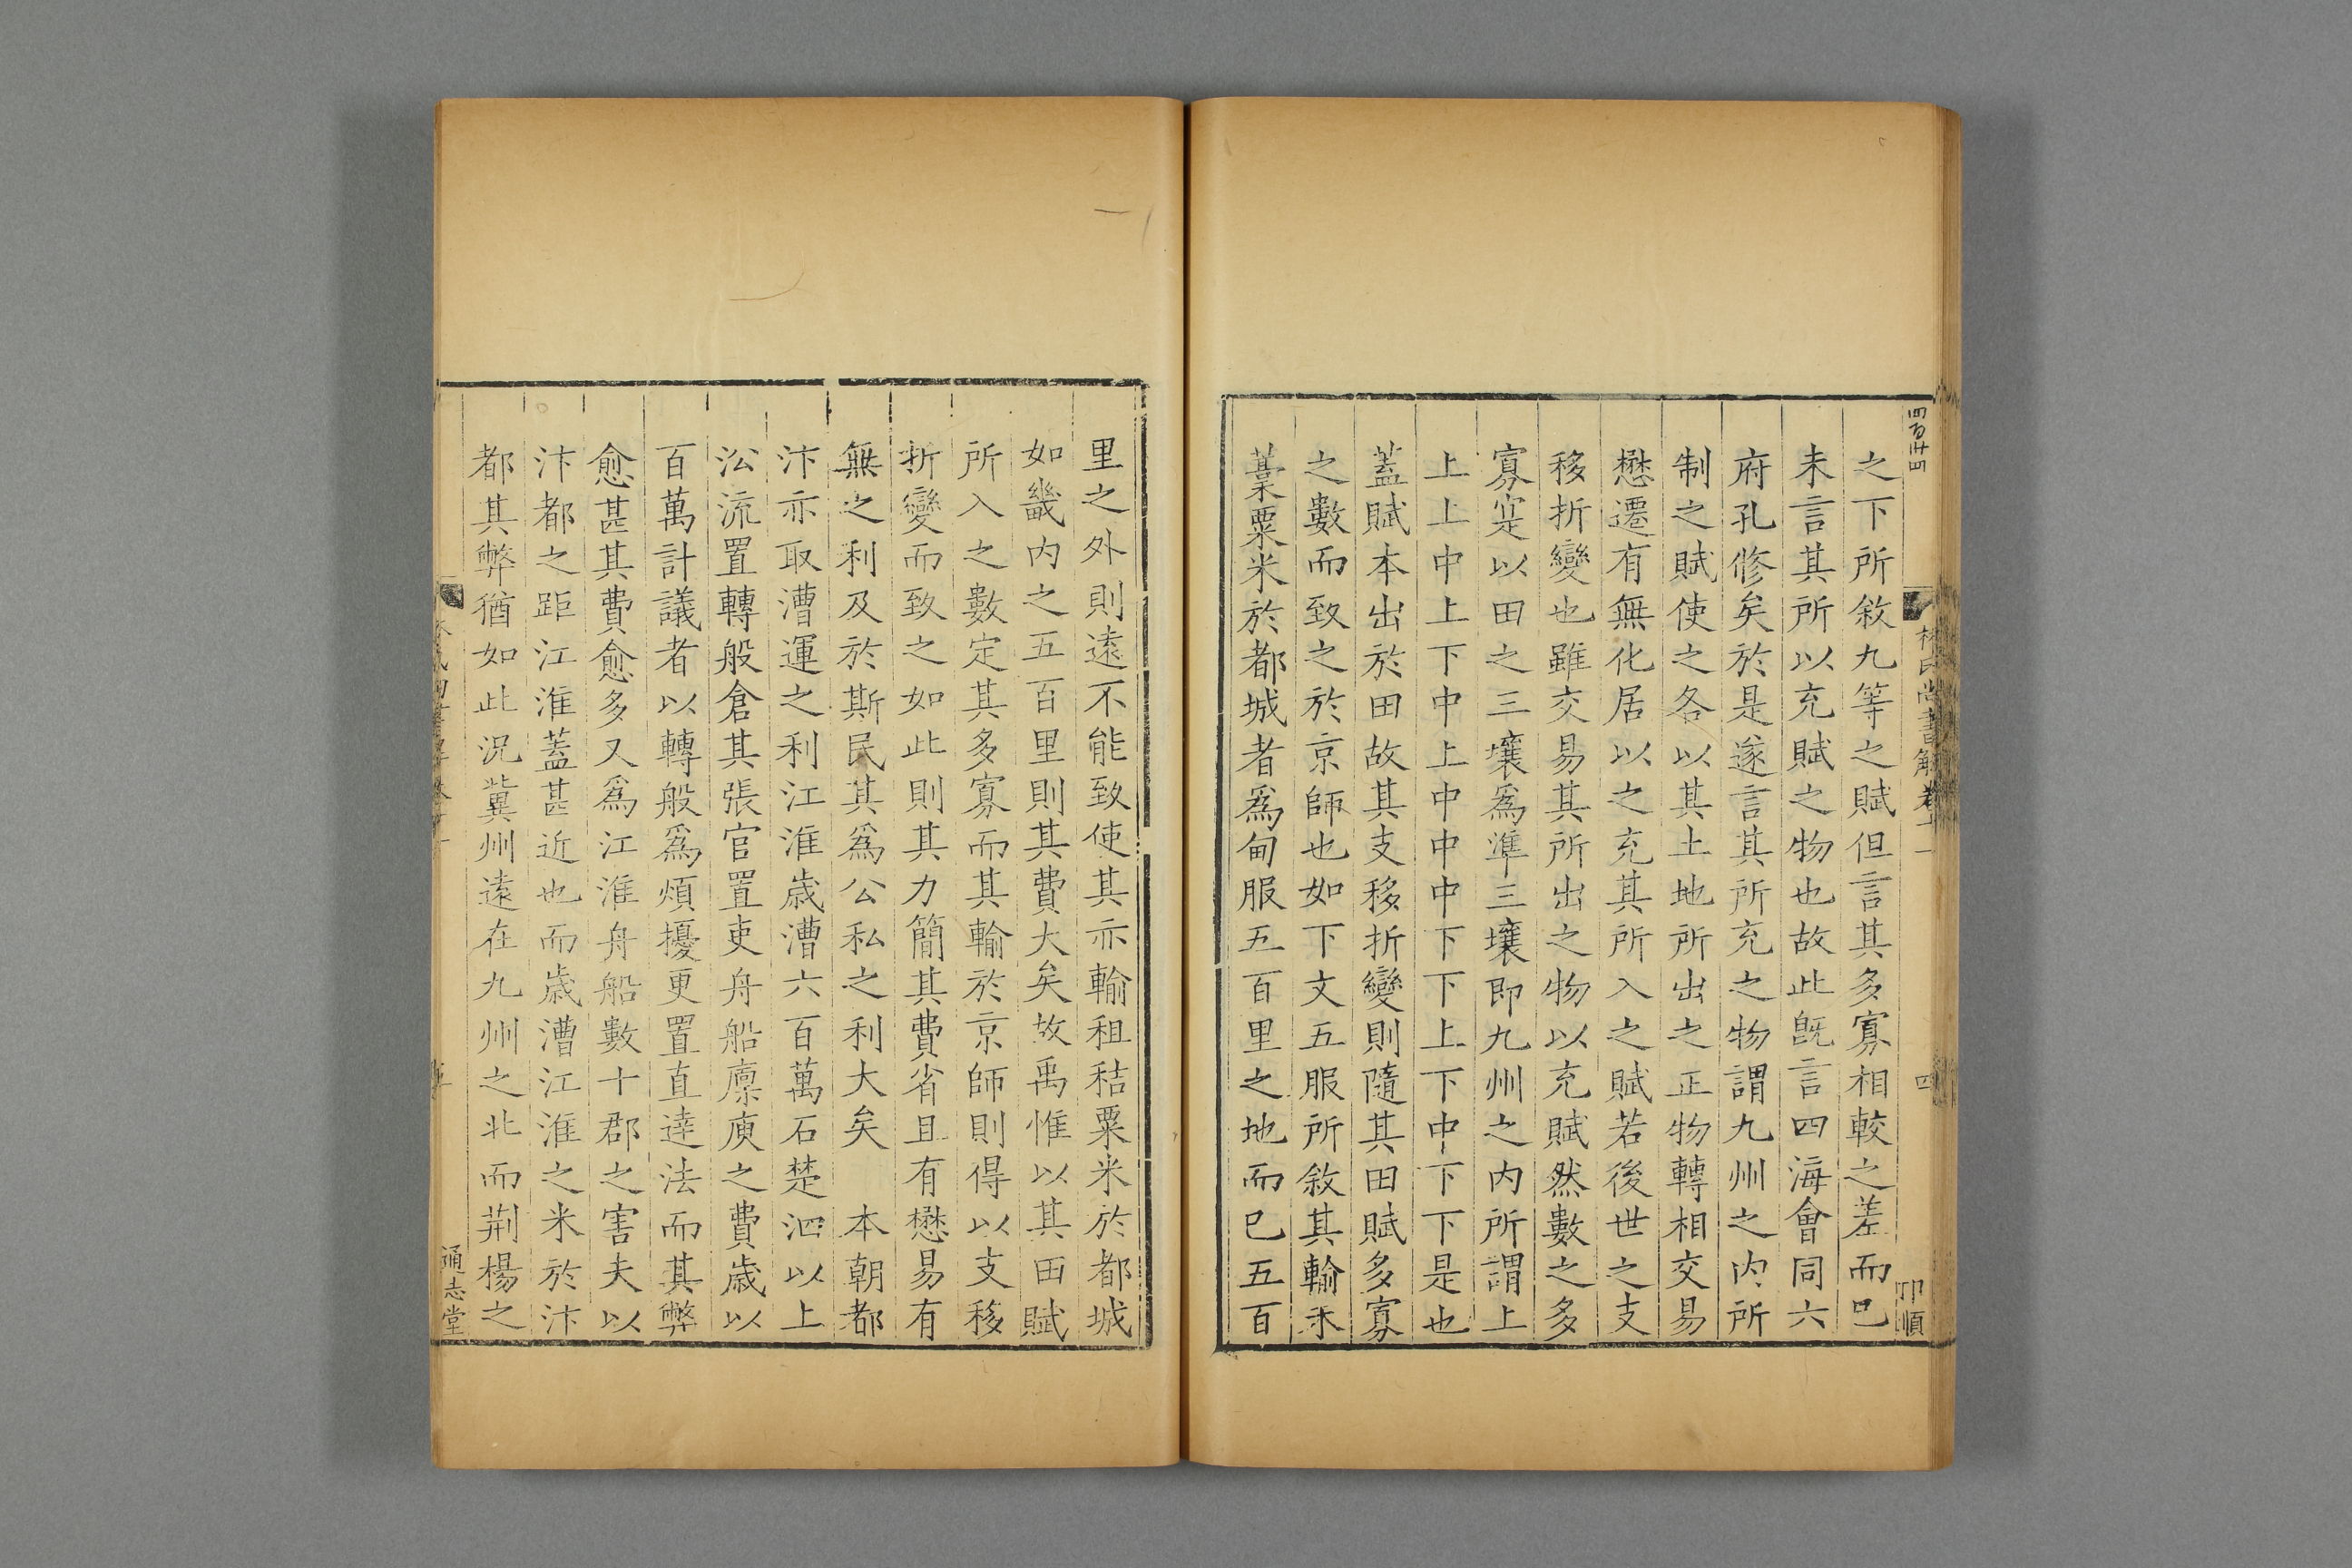 四百廿四
林氏尚書解卷十一
四
卬順
之下所敘九等之賦但言其多寡相較之差而巳
未言其所以充賦之物也故此旣言四海會同六
府孔修矣於是遂言其所充之物謂九州之內所
制之賦使之各以其土地所出之正物轉相交易
懋遷有無化居以之充其所入之賦若後世之支
移折變也雖交易其所出之物以充賦然數之多
寡寔以田之三壤爲準三壤即九州之內所謂上
上上中上下中上中中中下下上下中下下是也
蓋賦本出於田故其支移折變則隨其田賦多寡
之數而致之於京師也如下文五服所敘其輸禾
藁粟米於都城者爲甸服五百里之地而巳五百
里之外則遠不能致使其亦輸租秸粟米於都城
如畿內之五百里則其費大矣故禹惟以其田賦
所入之數定其多寡而其輸於京師則得以支移
折變而致之如此則其力簡其費省且有懋易有
無之利及於斯民其爲公私之利大矣　本朝都
汴亦取漕運之利江淮歲漕六百萬石楚泗以上
㳂流置轉般倉其張官置吏舟船廩庾之費歲以
百萬計議者以轉般爲煩擾更置直達法而其弊
愈甚其費愈多又爲江淮舟船數十郡之害夫以
汴都之距江淮蓋甚近也而歲漕江淮之米於汴
都其弊猶如此況冀州遠在九州之北而荆楊之
通志堂